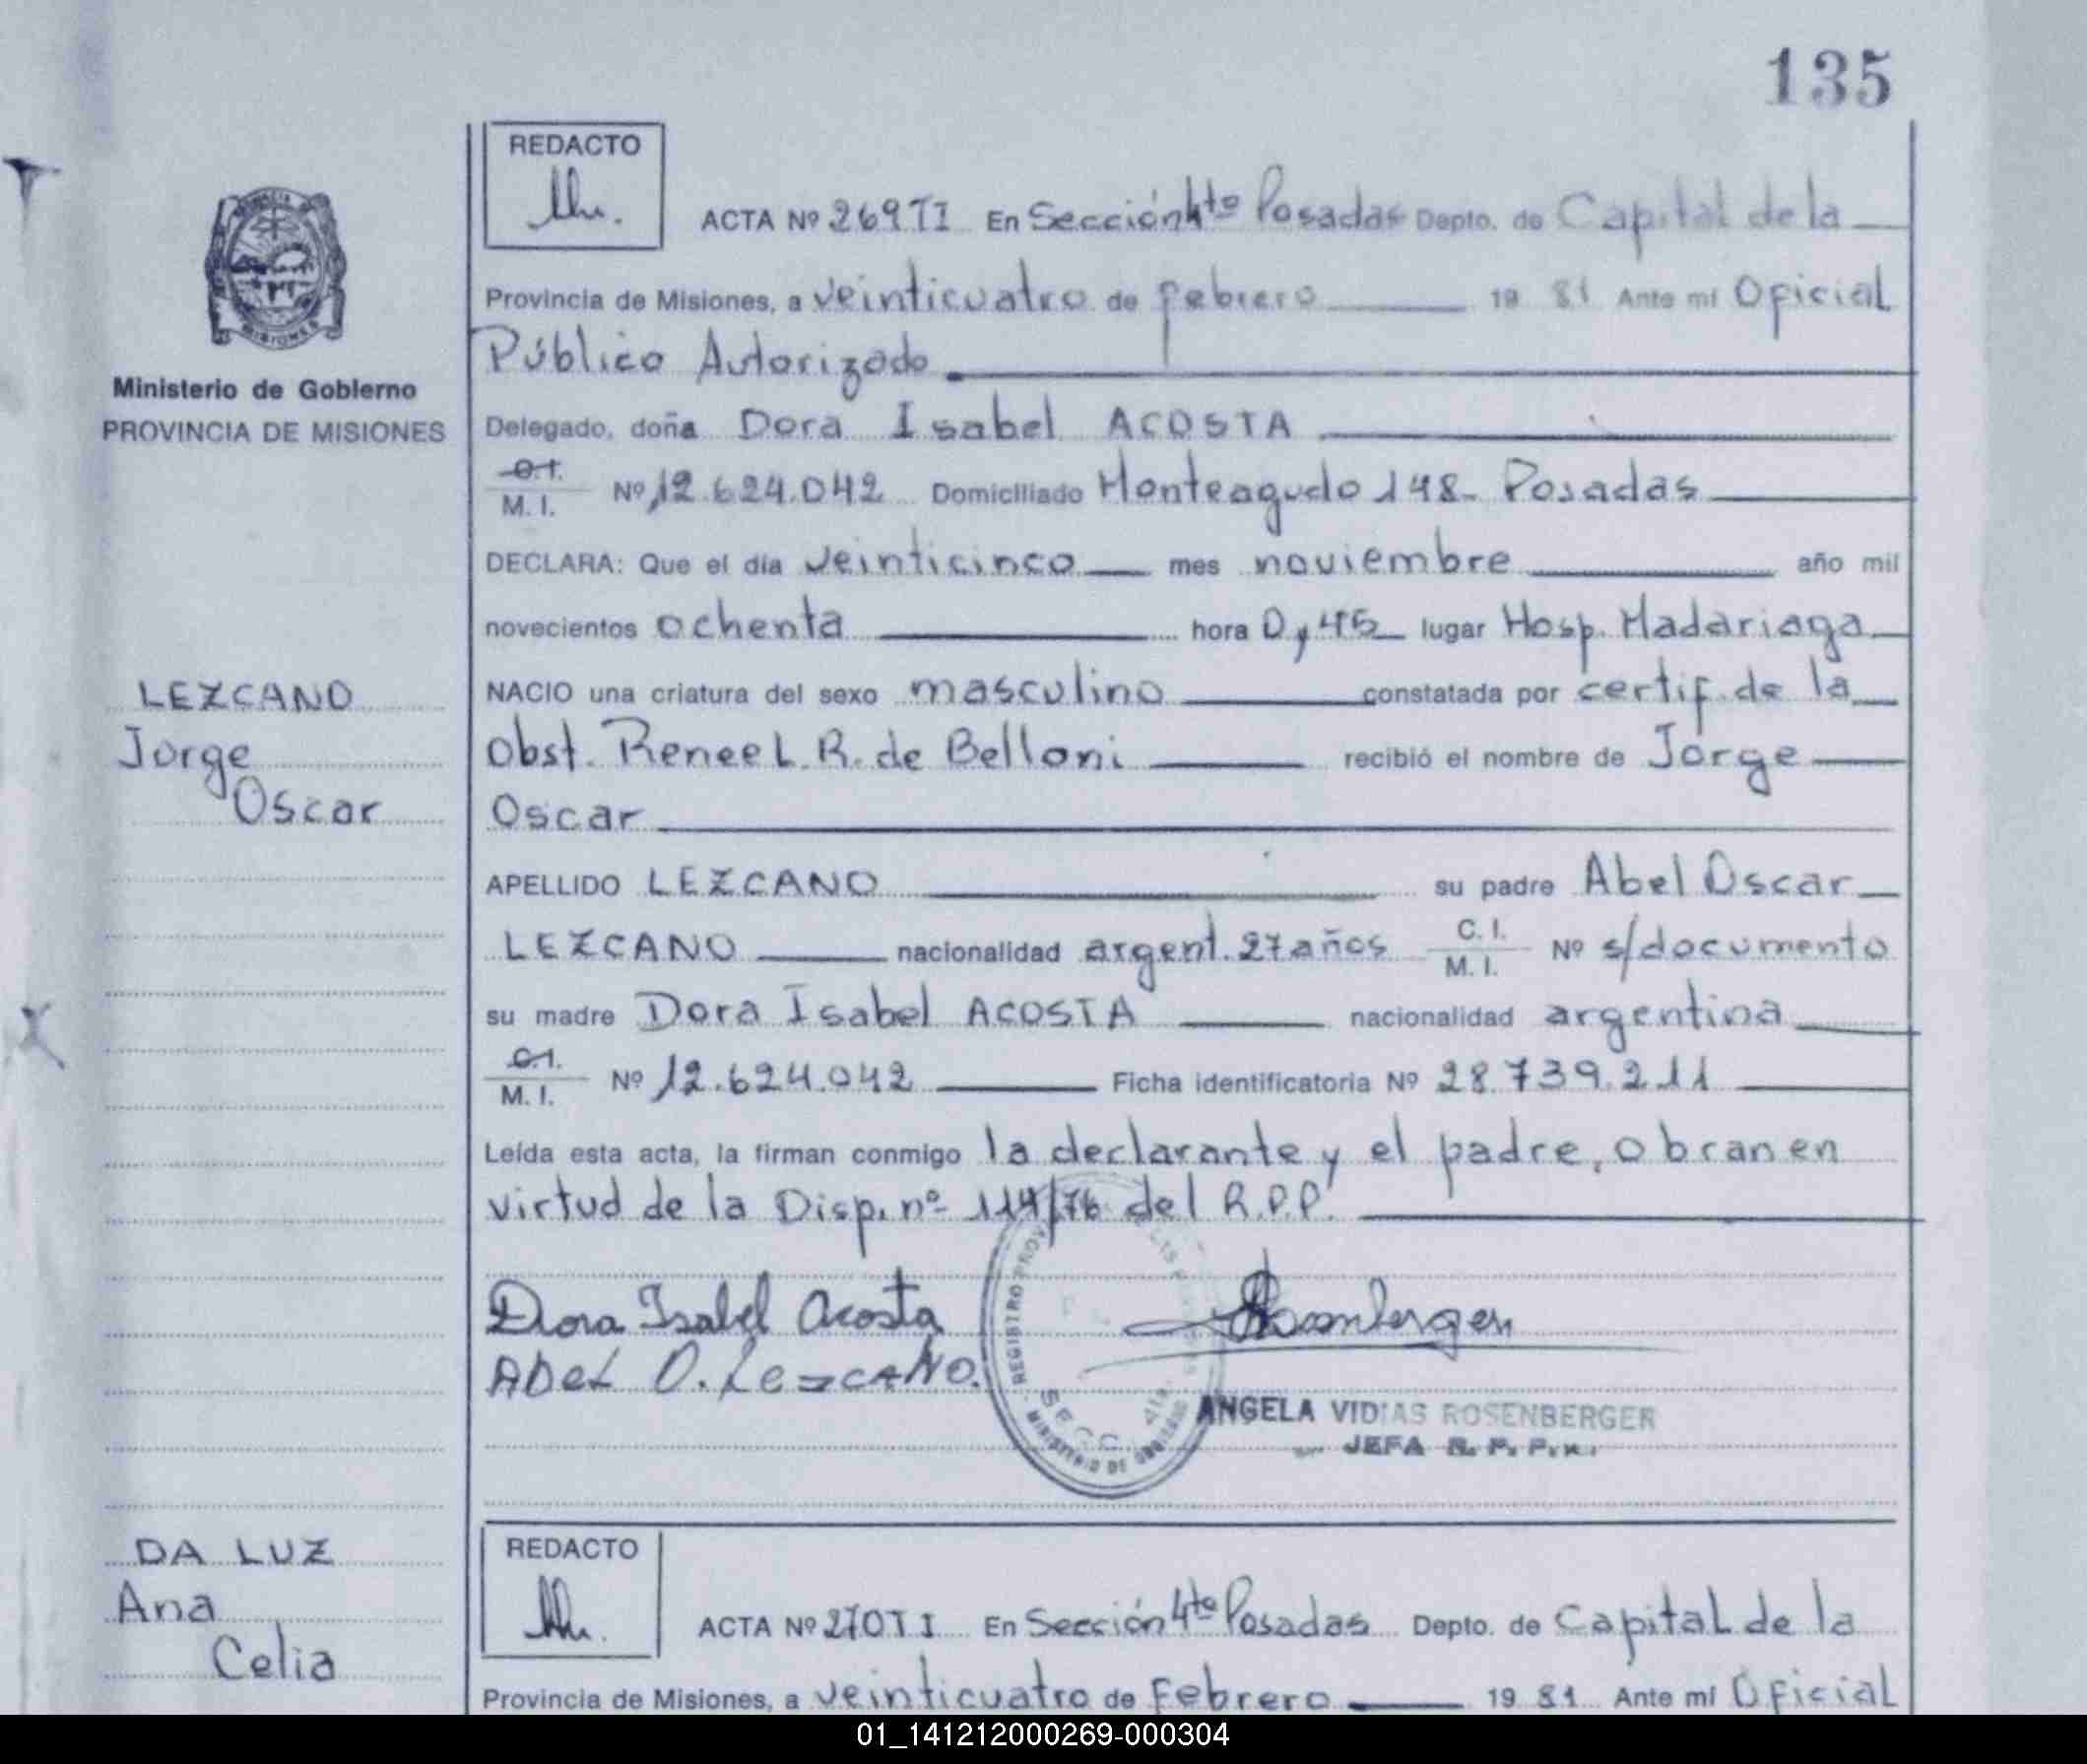 135
REDACTO
ACTA Nº 269TI En Sección 4to Posadas Depto. de Capital de la
Provincia de Misiones, a veinticuatro de febrero 19 81 Ante mí Oficial
Público Autorizado
Ministerio de Gobierno
PROVINCIA DE MISIONES
Delegado, doña Dora Isabel ACOSTA
C.I. M. I. Nº 12.624.042 Domiciliado Monteagudo 148- Posadas
DECLARA: Que el día veinticinco mes noviembre año mil
novecientos ochenta hora 0,45 lugar Hosp. Madariaga
LEZCANO
Jorge
Oscar
NACIO una criatura del sexo masculino constatada por certif. de la
Obst. Renee L. R. de Belloni recibió el nombre de Jorge
Oscar
APELLIDO LEZCANO su padre Abel Oscar
LEZCANO nacionalidad argent. 27 años C. I. M. I. Nº s/documento
su madre Dora Isabel ACOSTA nacionalidad argentina
C.I. M. I. Nº 12.624.042 Ficha identificatoria Nº 28.739.211
Leída esta acta, la firman conmigo la declarante y el padre, obran en
virtud de la Disp. nº 114/76 del R.P.P.
Dora Isabel Acosta
Abel O. Lezcano.
Rosenberger
REGISTRO PROV
SECC 4ta
MINISTERIO DE
ANGELA VIDIAS ROSENBERGER
JEFA R. P. P.
DA LUZ
Ana
Celia
REDACTO
ACTA Nº 270TI En Sección 4to Posadas Depto. de Capital de la
Provincia de Misiones, a veinticuatro de Febrero 19 81 Ante mí Oficial
01_141212000269-000304